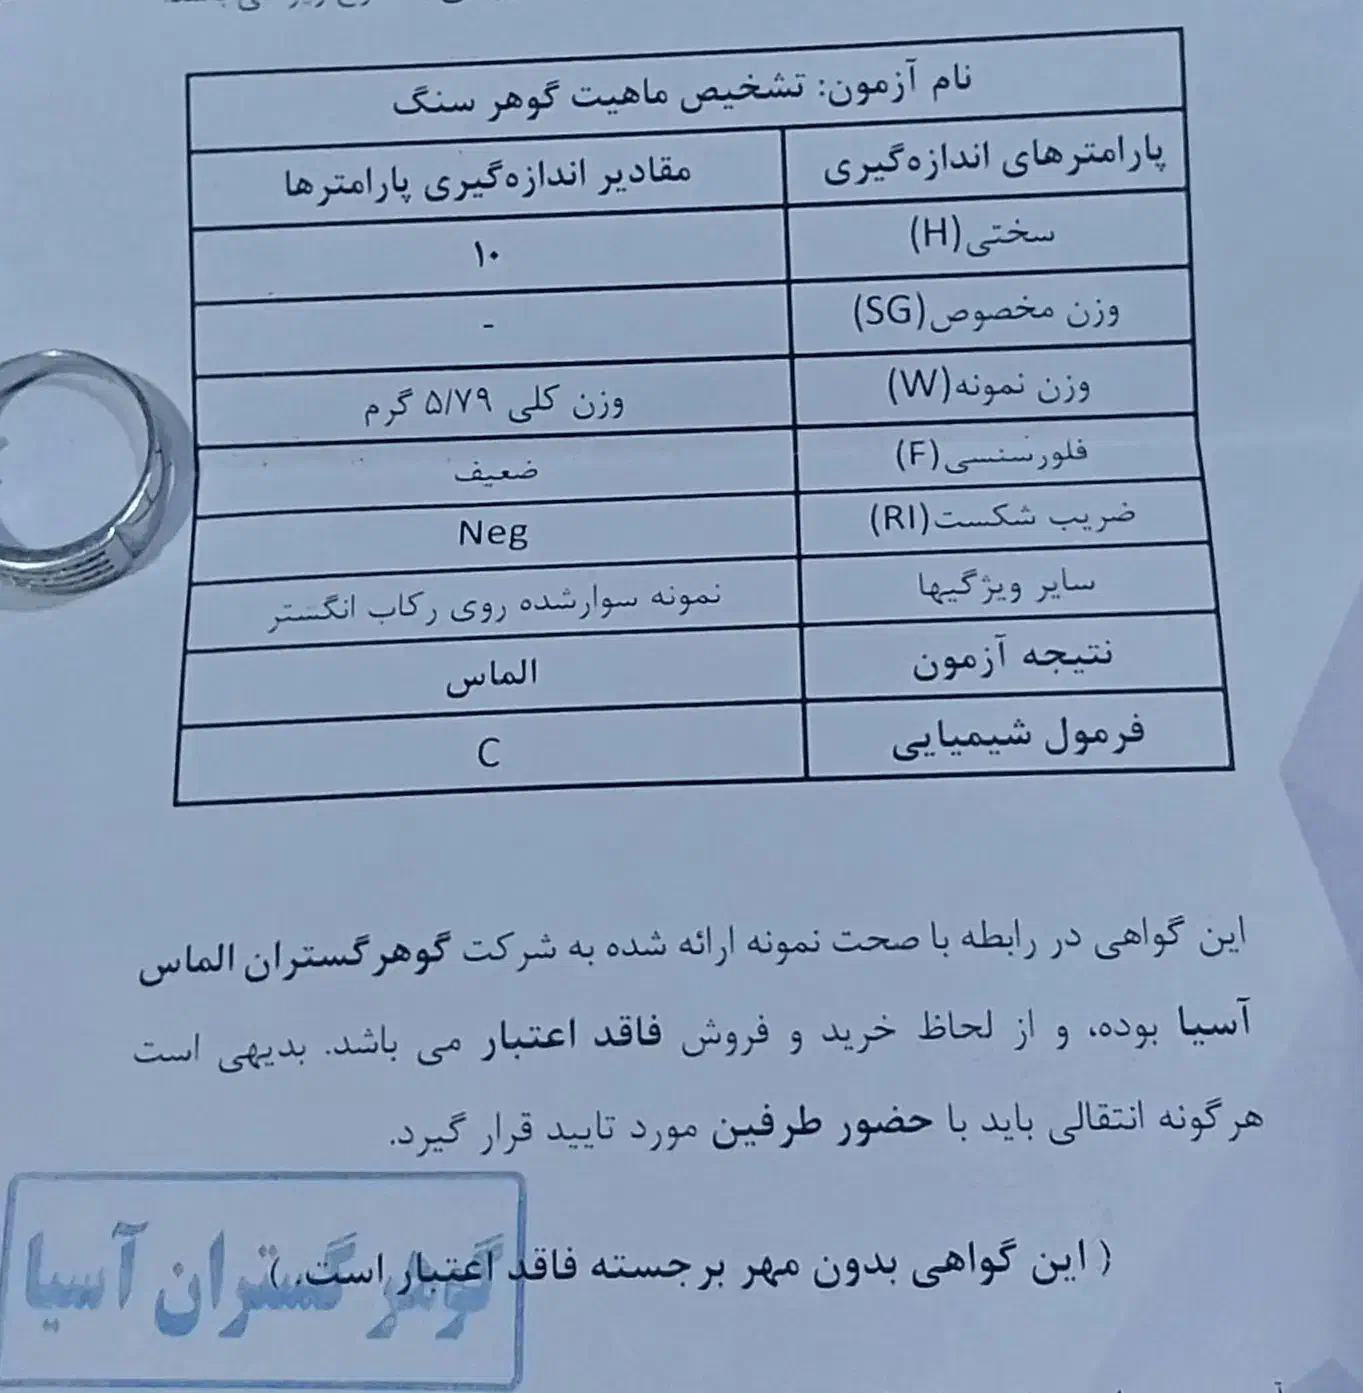 نام آزمون: تشخیص ماهیت گوهر سنگ
پارامترهای اندازه‌گیری مقادیر اندازه‌گیری پارامترها
سختی(H) ۱۰
وزن مخصوص(SG) -
وزن نمونه(W) وزن کلی ۵/۷۹ گرم
فلورسنسی(F) ضعیف
ضریب شکست(RI) Neg
سایر ویژگیها نمونه سوارشده روی رکاب انگستر
نتیجه آزمون الماس
فرمول شیمیایی C
این گواهی در رابطه با صحت نمونه ارائه شده به شرکت گوهر گستران الماس
آسیا بوده، و از لحاظ خرید و فروش فاقد اعتبار می باشد. بدیهی است
هرگونه انتقالی باید با حضور طرفین مورد تایید قرار گیرد.
( این گواهی بدون مهر برجسته فاقد اعتبار است. )
گوهر گستران آسیا